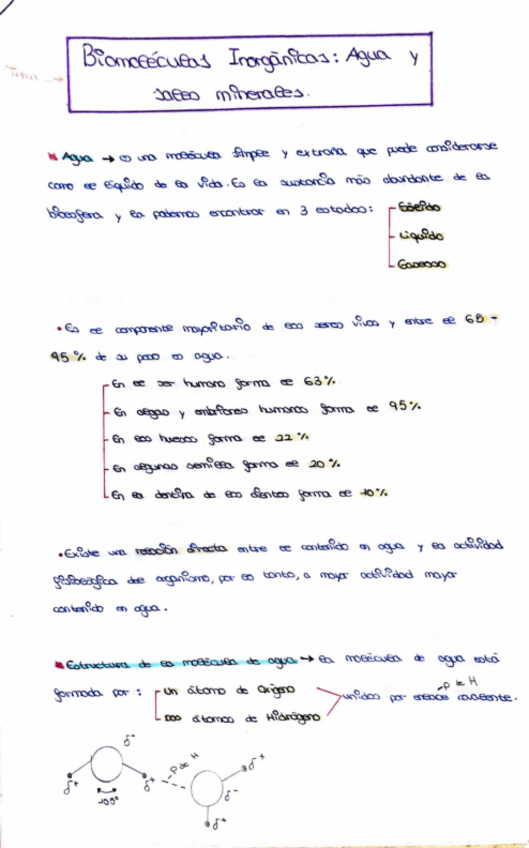 Biomoléculas Inorgánicas: Agua y
sales minerales.
Agua → es una molécula simple y extraña que puede considerarse
como el líquido de la vida. Es la sustancia más abundante de la
biosfera y la podemos encontrar en 3 estados:
Sólido
Líquido
Gaseoso
• Es el componente mayoritario de los seres vivos y entre el 65 -
95% de su peso es agua.
En el ser humano forma el 63%
En algas y embriones humanos forma el 95%
En los huesos forma el 22%
En algunas semillas forma el 20%
En la dentina de los dientes forma el 10%
• Existe una relación directa entre el contenido en agua y la actividad
fisiológica del organismo, por lo tanto, a mayor actividad mayor
contenido en agua.
Estructura de la molécula de agua → la molécula de agua está
formada por: un átomo de Oxígeno
dos átomos de Hidrógeno
unidos por enlace covalente.
P de H
δ-
δ+
δ+
P de H
δ+
δ-
δ+